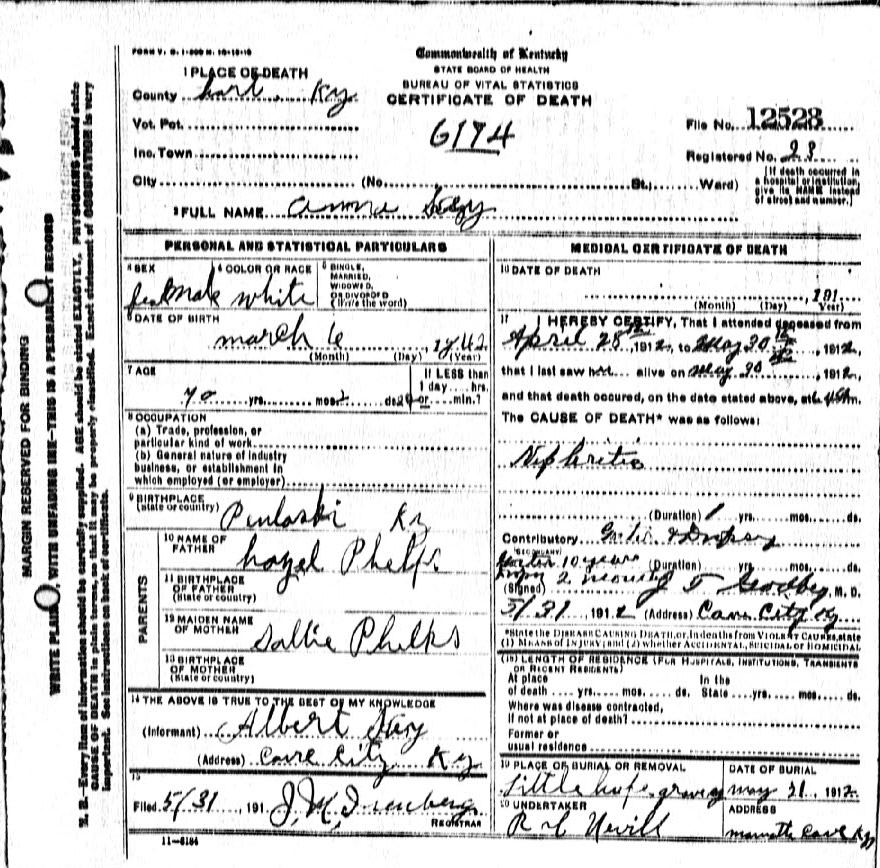 FORM V. S. 1-200 M. 10-10-10
Commonwealth of Kentucky
STATE BOARD OF HEALTH
BUREAU OF VITAL STATISTICS
CERTIFICATE OF DEATH
1 PLACE OF DEATH
County Ky
Vot. Pct.
Inc. Town
City (No. St.; Ward)
6174
File No. 12528
Registered No. 28
[If death occurred in a hospital or institution, give its NAME instead of street and number.]
2 FULL NAME
PERSONAL AND STATISTICAL PARTICULARS
3 SEX female
4 COLOR OR RACE white
5 SINGLE, MARRIED, WIDOWED, OR DIVORCED (Write the word)
6 DATE OF BIRTH
march 6, 1842
(Month) (Day) (Year)
7 AGE
70 yrs. mos. 2 ds. 24
If LESS than 1 day hrs. or min.?
8 OCCUPATION
(a) Trade, profession, or particular kind of work
(b) General nature of industry business, or establishment in which employed (or employer)
9 BIRTHPLACE
(State or country) Pulaski Ky
PARENTS
10 NAME OF FATHER Phelps
11 BIRTHPLACE OF FATHER (State or country)
12 MAIDEN NAME OF MOTHER Sallie Phelks
13 BIRTHPLACE OF MOTHER (State or country)
14 THE ABOVE IS TRUE TO THE BEST OF MY KNOWLEDGE
(Informant) Albert
(Address) Cave City Ky
15
Filed 5/31, 191 REGISTRAR
11-6184
MEDICAL CERTIFICATE OF DEATH
16 DATE OF DEATH
, 191
(Month) (Day) Year)
17 I HEREBY CERTIFY, That I attended deceased from
April 28, 1912, to May 30, 1912,
that I last saw alive on May 30, 1912,
and that death occured, on the date stated above, at m.
The CAUSE OF DEATH* was as follows:
Nephritis
(Duration) 1 yrs. mos. ds.
Contributory & Dropsy
(SECONDARY)
10 years (Duration) yrs. mos. ds.
2 months
(Signed) J T Godby, M. D.
5/31, 1912 (Address) Cave City Ky
*State the DISEASE CAUSING DEATH, or, in deaths from VIOLENT CAUSES, state
(1) MEANS OF INJURY; and (2) whether ACCIDENTAL, SUICIDAL or HOMICIDAL
18 LENGTH OF RESIDENCE (FOR HOSPITALS, INSTITUTIONS, TRANSIENTS OR RECENT RESIDENTS)
At place of death yrs. mos. ds. In the State yrs. mos. ds.
Where was disease contracted,
If not at place of death?
Former or
usual residence
19 PLACE OF BURIAL OR REMOVAL Little hope
DATE OF BURIAL may 31, 1912
20 UNDERTAKER
ADDRESS Cave Ky
MARGIN RESERVED FOR BINDING
WRITE PLAINLY, WITH UNFADING INK—THIS IS A PERMANENT RECORD
N. B.—Every item of information should be carefully supplied. AGE should be stated EXACTLY. PHYSICIANS should state
CAUSE OF DEATH in plain terms, so that it may be properly classified. Exact statement of OCCUPATION is very
important. See instructions on back of certificate.